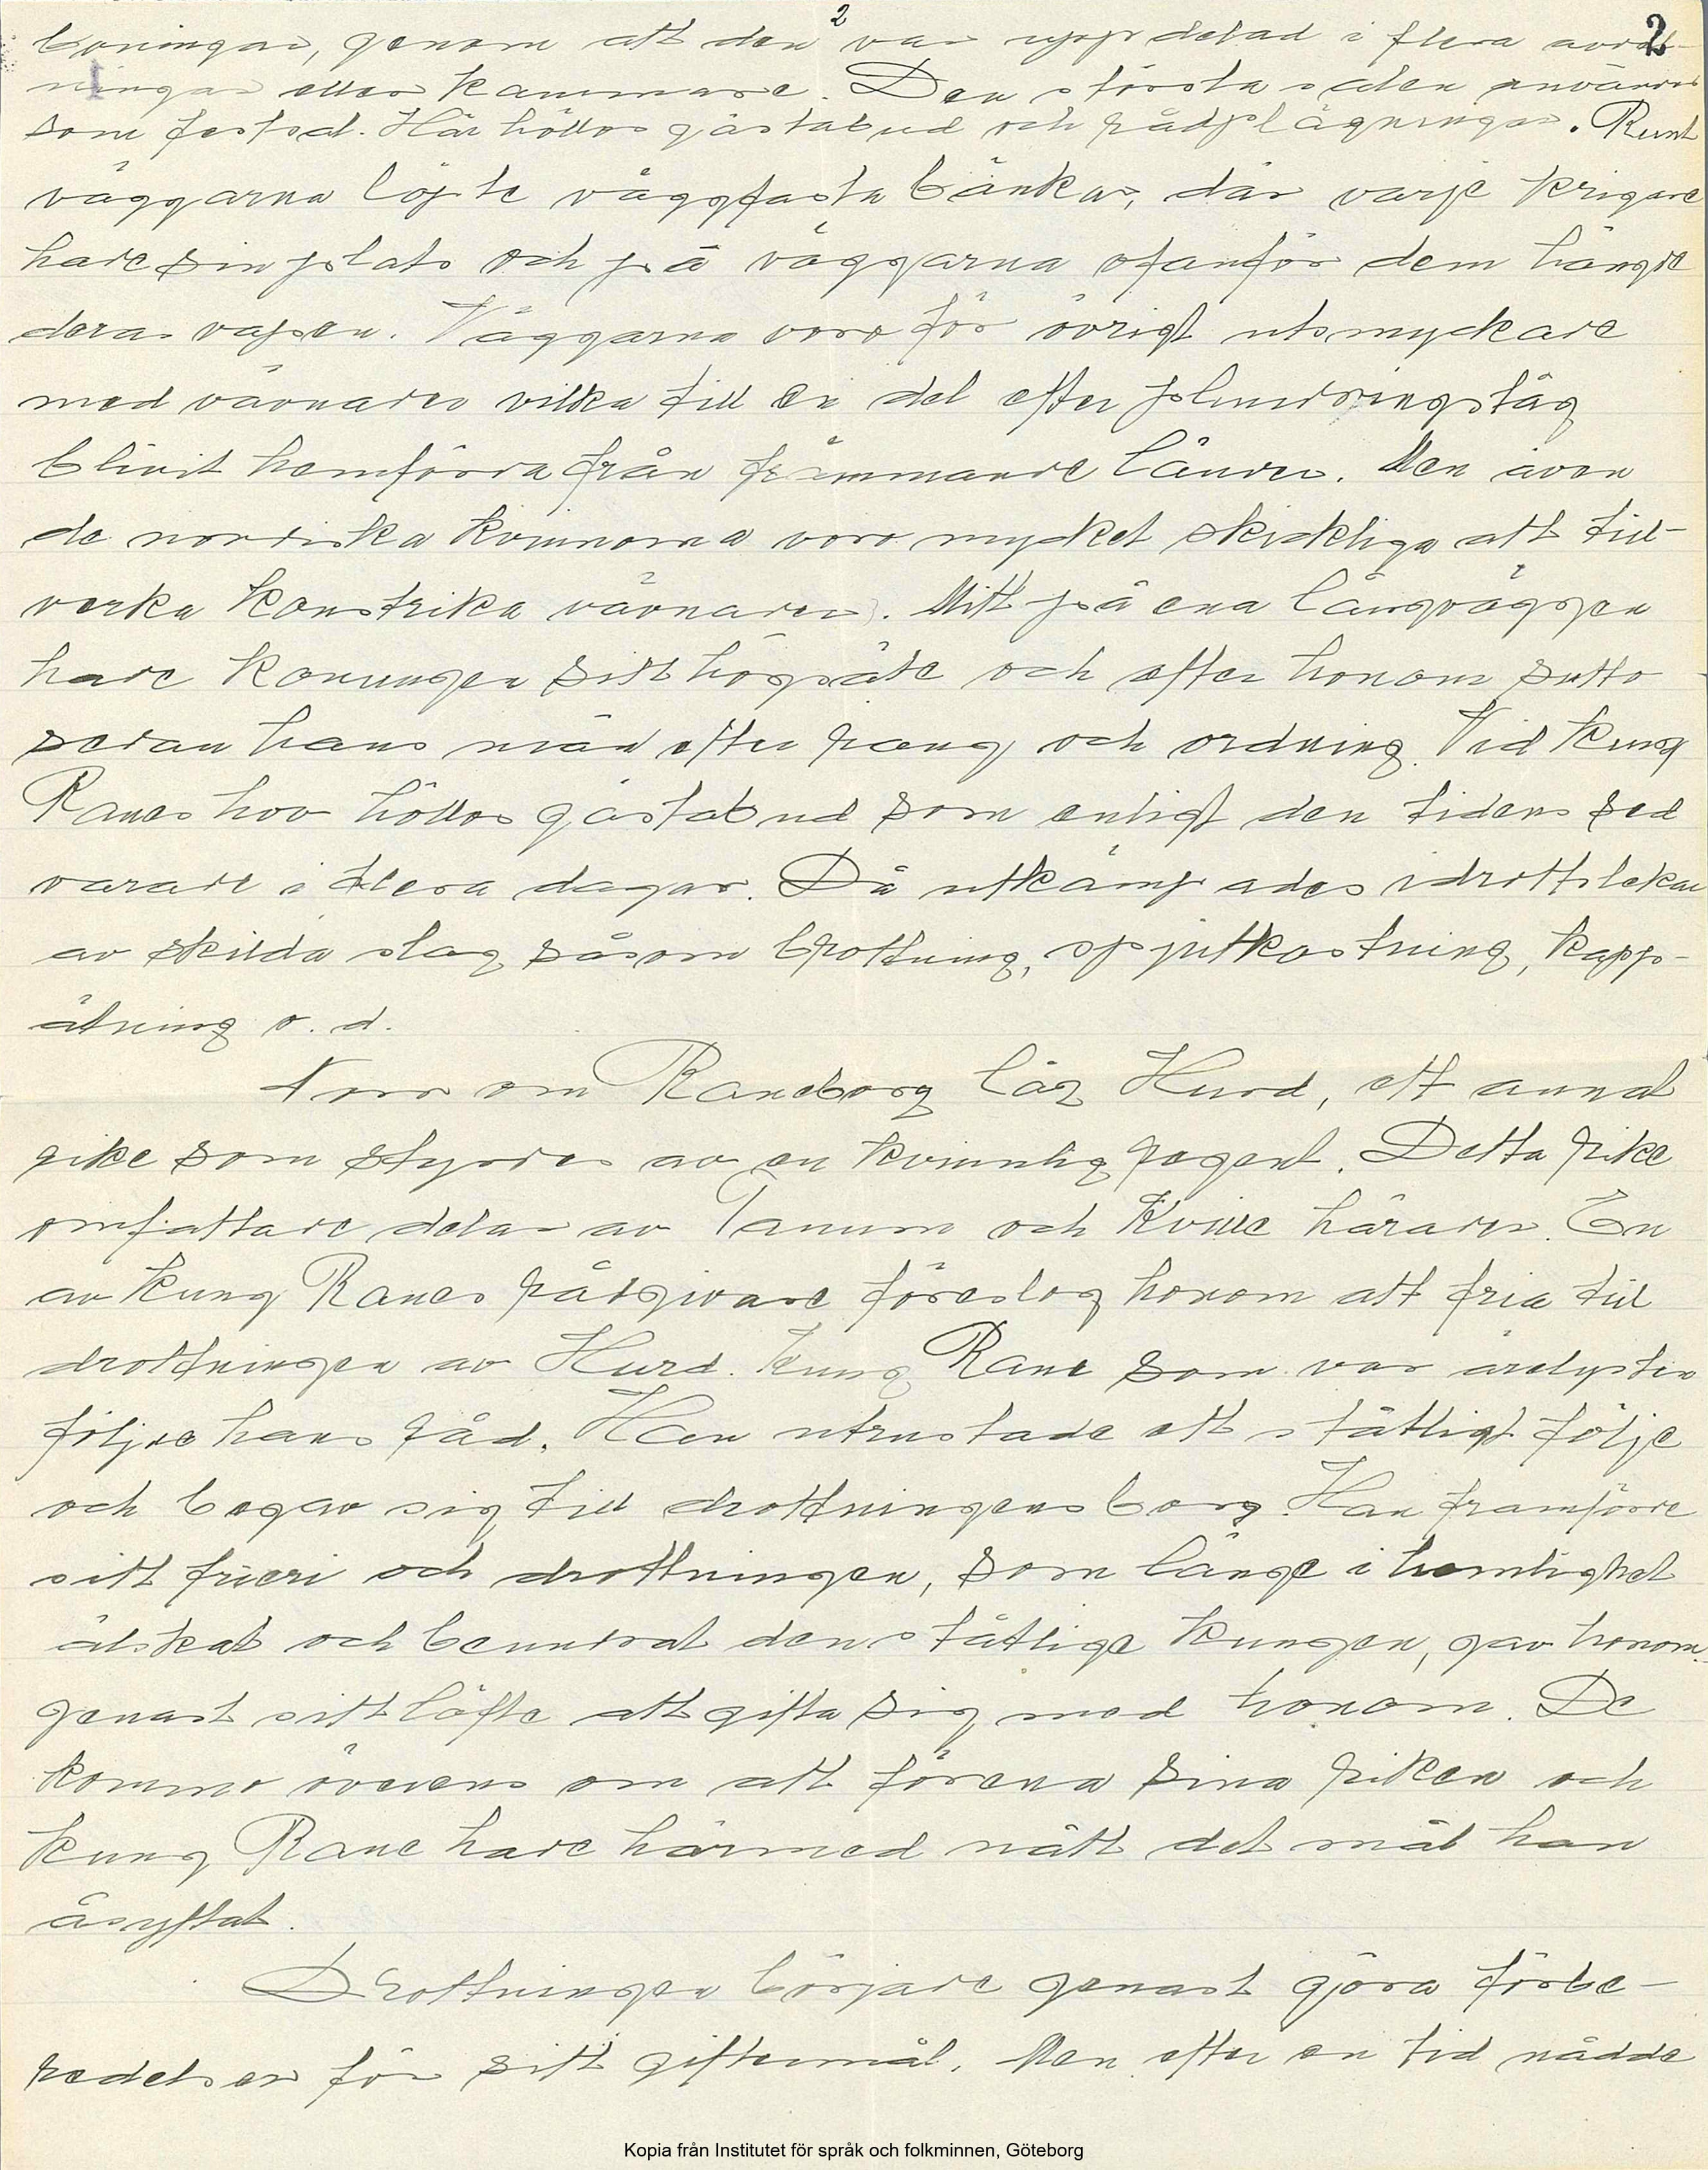 2
2
boningar, genom att den var uppdelad i flera avdel-
ningar eller kammare. Den största salen användes
som festsal. Här höllos gästabud och rådplägningar. Runt
väggarna löpte väggfasta bänkar, där varje krigare
hade sin plats och på väggarna ofanför dem hängde
deras vapen. Väggarna voro för övrigt utsmyckade
med vävnader vilka till en del efter plundringståg
blivit hemförda från främmande länder. Men även
de nordiska kvinnorna voro mycket skickliga att till-
verka konstrika vävnader. Mitt på ena långväggen
hade konungen sitt högsäte och efter honom sutto
sedan hans män efter rang och ordning. Vid kung
Ranes hov höllos gästabud som enligt den tidens sed
varade i flera dagar. Då utkämpades idrottslekar
av skilda slag såsom brottning, spjutkastning, kapp-
ätning o. d.
Norr om Raneborg låg Hurd, ett annat
rike som styrdes av en kvinnlig regent. Detta rike
omfattade delar av Tanum och Kville härader. En
av kung Ranes rådgivare föreslog honom att fria till
drottningen av Hurd. Kung Rane som var ärelysten
följde hans råd. Han utrustade ett ståtligt följe
och begav sig till drottningens borg. Han framförde
sitt frieri och drottningen, som länge i hemlighet
älskat och beundrat den ståtlige kungen, gav honom
genast sitt löfte att gifta sig med honom. De
kommo överens om att förena sina riken och
kung Rane hade härmed nått det mål han
åsyftat.
Drottningen började genast göra förbe-
redelser för sitt giftermål. Men efter en tid nådde
Kopia från Institutet för språk och folkminnen, Göteborg